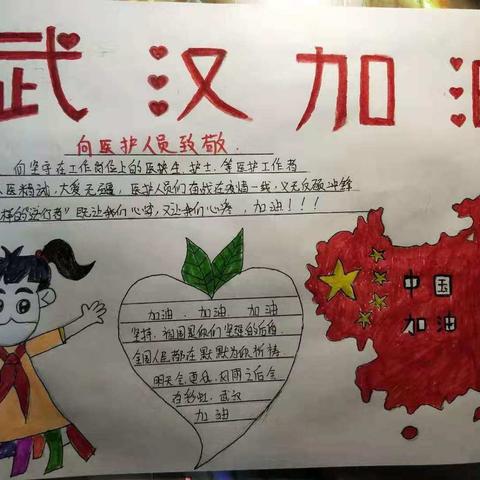 武汉加油
向医护人员致敬.
向坚守在工作岗位上的医生、护士、等医护工作者
医精诚,大爱无疆,医护人员们奋战在疫情一线,义无反顾冲锋
样的"逆行者"既让我们心安,又让我们心疼,加油!!!
加油、加油 加油
坚持,祖国是你们坚强的后盾
全国人民都在默默为你祈祷
明天会更好,风雨之后会
有彩虹,武汉
加油
中国
加油